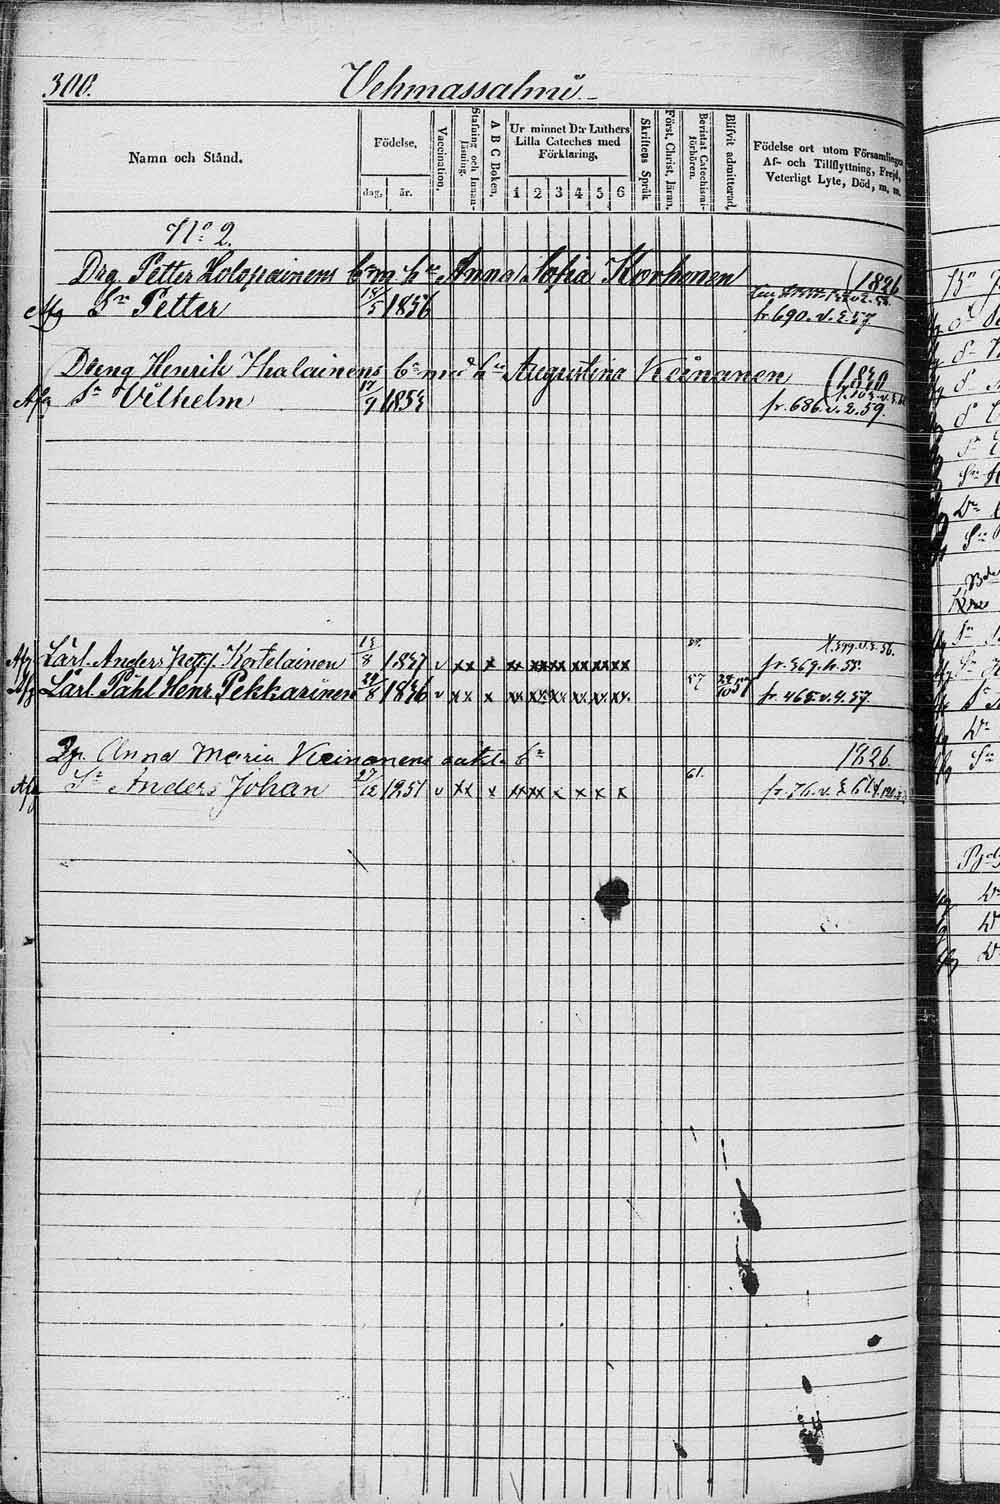 300. Vehmassalmi
Namn och Stånd.
Födelse,
dag, år.
Vaccination,
Stafning och Innanläsning.
A B C Boken,
Ur minnet D:r Luthers Lilla Cateches med Förklaring,
1 2 3 4 5 6
Skriftens Språk
Först, Christ, Läran,
Bevistat Catechismiförhören.
Blifvit admitterad,
Födelse ort utom Församlingen
Af- och Tillflyttning, Frejd,
Veterligt Lyte, Död, m, m,
No 2.
Drg Petter Lolopainens bn m. hu Anna Sofia Korhonen 1826
Afg Sn Petter 18/5 1856 fr. 690. v. 2. 57.
Dreng Henrik Ihalainens bn med hu Augustina Keinänen 1830
Afg Sn Vilhelm 17/9 1853 fr. 686. v. 2. 59.
Afg Lärl. Anders Kortelainen 13/8 1837 v xx x xx xx xx xx xx xx fr. 369. h. 55.
Afg Lärl Påhl Henr Pekkarinen 29/8 1836 v xx x xx xx xx xx xx xx 57 fr. 465. v. 4. 57.
Anna Maria Keinänens oäkta bn 1826.
Afg Sn Anders Johan 27/12 1851 v xx x xx xx x x x x 61. fr. 76. v. 2 61.